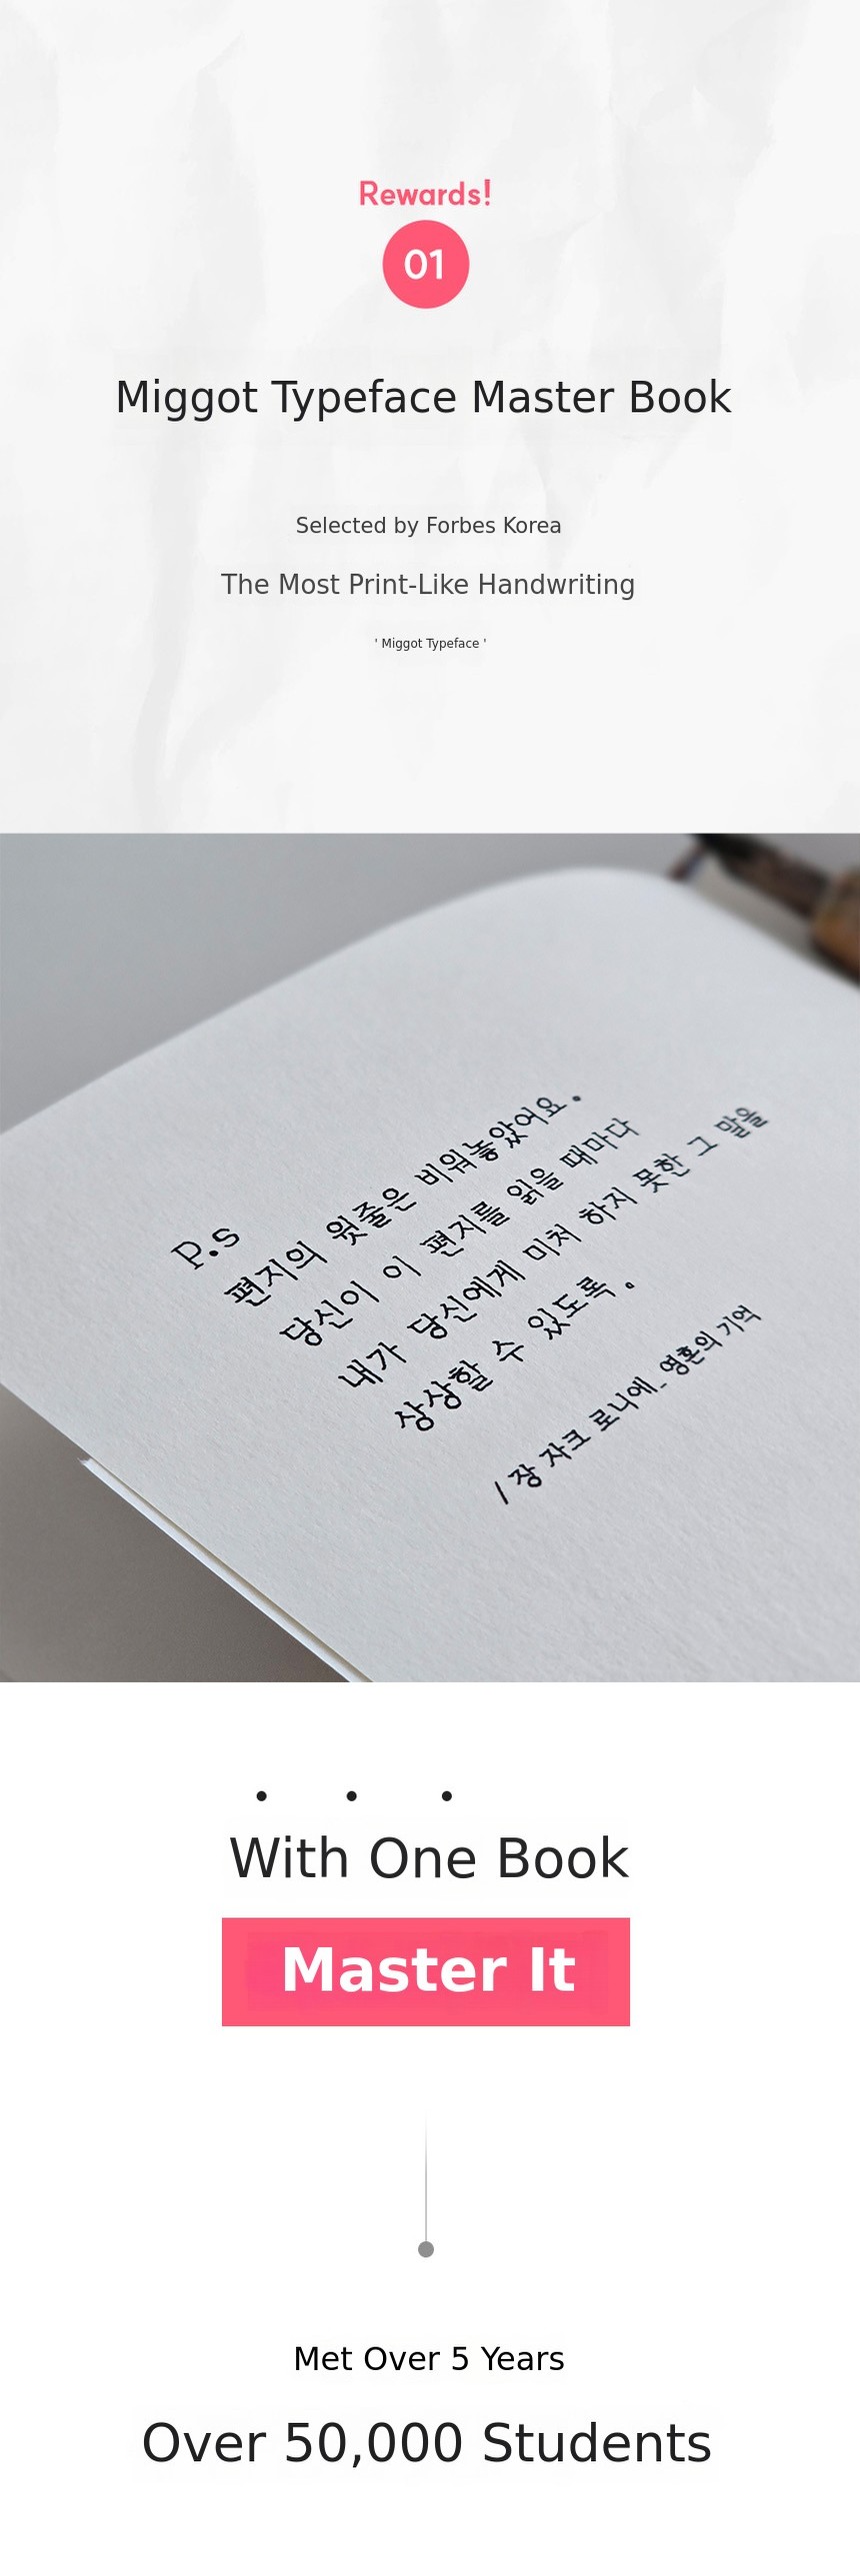 Rewards!
01
Miggot Typeface Master Book
Selected by Forbes Korea
The Most Print-Like Handwriting
' Miggot Typeface '
P.s
편지의 윗줄은 비워놓았어요.
당신이 이 편지를 읽을 때마다
내가 당신에게 미처 하지 못한 그 말을
상상할 수 있도록.
/ 장 자크 로니에_영혼의 기억
With One Book
Master It
Met Over 5 Years
Over 50,000 Students